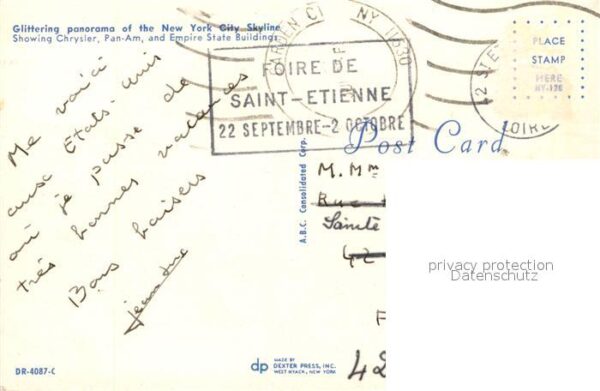 Glittering panorama of the New York City Skyline
Showing Chrysler, Pan-Am, and Empire State Buildings
Me voici
aux Etats-unis
où je passe de
très bonnes vacances
Bons baisers
GARDEN CI NY 11530
FOIRE DE
SAINT-ETIENNE
22 SEPTEMBRE-2 OCTOBRE
42 ST E
LOIRE
PLACE
STAMP
HERE
NY-126
Post Card
A.B.C. Consolidated Corp.
M. Mm
Rue
Sainte
42
F
42
privacy protection
Datenschutz
DR-4087-C
dp
MADE BY
DEXTER PRESS, INC.
WEST NYACK, NEW YORK